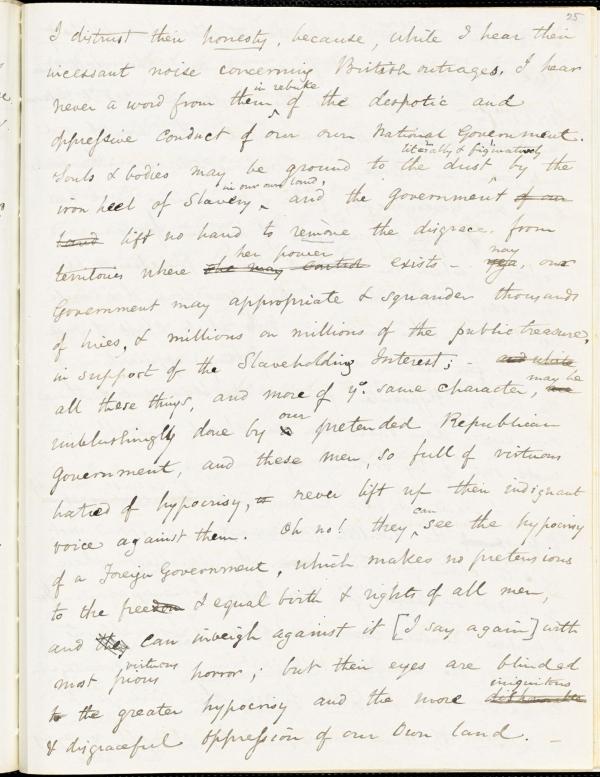 25
I distrust their honesty, because, while I hear their
incessant noise concerning British outrages, I hear
in rebuke
never a word from them ‸ of the despotic and
oppressive conduct of our own National Government.
literally & figuratively
Souls & bodies may be ground to the dust ‸ by the
in our own land,
iron heel of Slavery ‸ and the Government of our
land lift no hand to remove the disgrace, from
her power nay
territories where she may control exists – our
Government may appropriate & squander thousands
of lives, & millions on millions of the public treasure,
in support of the Slaveholding Interest; – and while
all these things, and more of ye. same character, may be
our
unblushingly done by pretended Republican
Government, and these men, so full of virtuous
hatred of hypocrisy, never lift up their indignant
can
voice against them. Oh no! they ‸ see the hypocrisy
of a Foreign Government, which makes no pretensions
to the freedom & equal birth & rights of all men,
and they can inveigh against it [I say again] with
virtuous
most pious horror; but their eyes are blinded
iniquitous
to the greater hypocrisy and the more dishonorable
& disgraceful oppression of our Own land. –